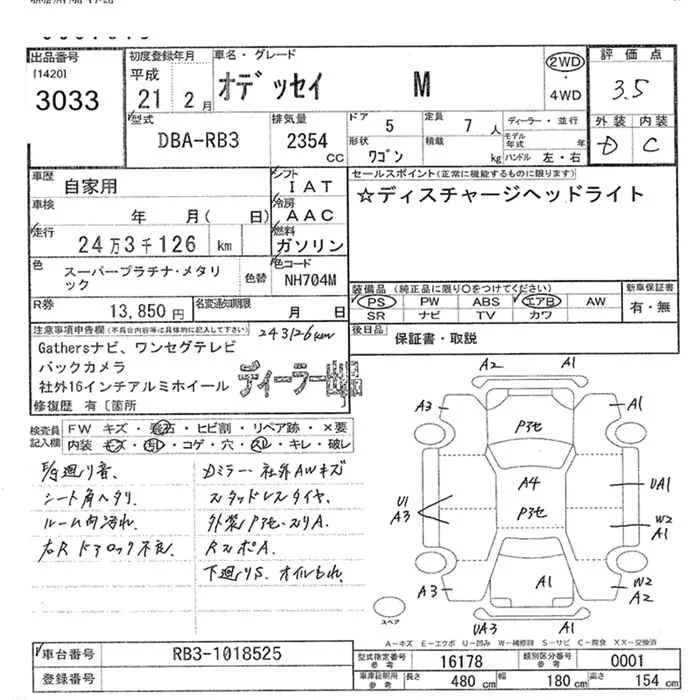 出品番号
[1420]
3033
初度登録年月
平成
21 2月
車名・グレード
オデッセイ M
2WD
・
4WD
評価点
3.5
外装 内装
D C
型式
DBA-RB3
排気量
2354
CC
ドア 5
定員 7人
形状 ワゴン
積載 kg
ディーラー・並行
モデル年式 年
ハンドル 左・右
車歴 自家用
シフト IAT
車検 年 月( 日)
冷房 AAC
走行 24万3千126 km
燃料 ガソリン
色 スーパープラチナ・メタリック
色替
色コード NH704M
R券 13,850円
名変通知期限 月 日
セールスポイント(正常に機能するものに限ります)
☆ディスチャージヘッドライト
装備品(純正品に限り○をつけてください)
PS PW ABS エアB AW
SR ナビ TV カワ
新車保証書
有・無
後日品 保証書・取説
注意事項申告欄(不具合内容等は具体的に記入して下さい)
243126km
Gathersナビ、ワンセグテレビ
バックカメラ
社外16インチアルミホイール
ディーラー出品
修復歴 有〔箇所 〕
検査員記入欄
FW キズ・飛石・ヒビ割・リペア跡・×要
内装 キズ・汚レ・コゲ・穴・スレ・キレ・破レ
シート角ヘタリ、
ルーム内汚れ
右Rドアロック不良、
Dミラー・社外AWキズ
スタッドレスタイヤ、
外装Pヨセ・スリA、
RスポA、
下廻りS、オイルもれ、
A2 A1
A3 A1
Pヨセ
A4
UA1
Pヨセ
U1
A3
W2
A1
A3
A1
W2
A2
UA3 A1
スペア
A-キズ E-エクボ U-凹み W-補修跡 S-サビ C-腐食 XX-交換済
車台番号 RB3-1018525
登録番号
型式指定番号参考 16178
類別区分番号参考 0001
車庫証明用参考
長さ 480cm
幅 180cm
高さ 154cm